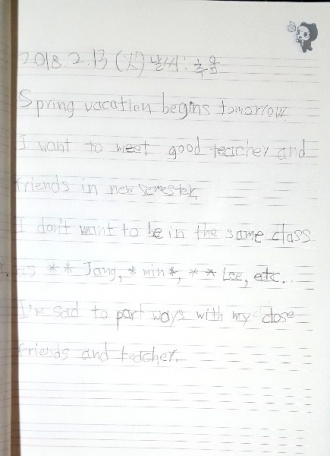 2018. 2. 13 (화) 날씨: 추움
Spring vacation begins tomorrow.
I want to meet good teacher and
friends in new semester.
I don't want to be in the same class
as ** Jang, * min *, ** Lee, etc..
I'm sad to part ways with my close
friends and teacher.